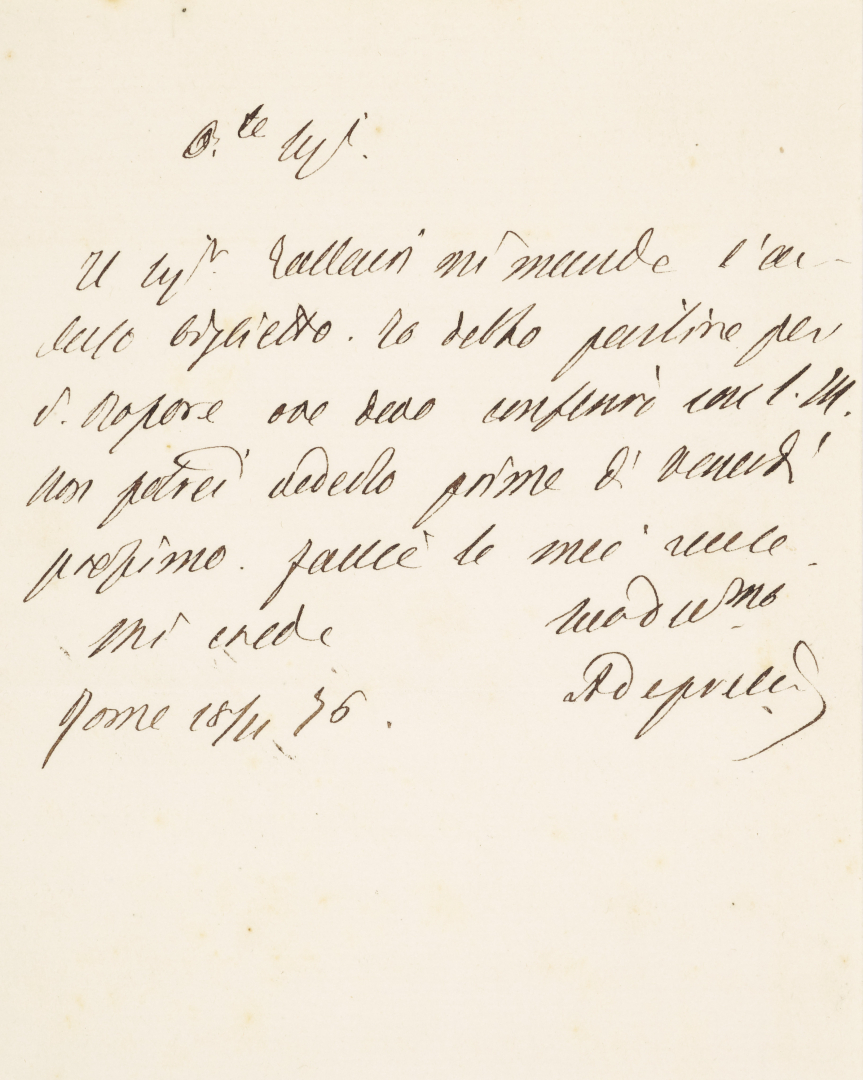 Il Sigr mi manda l'ac-
cluso biglietto. Io debbo partire per
S. Rossore ove devo conferire con S. M.
Non potrei vederlo prima di venerdì
prossimo. Faccia le mie scuse
Mi creda
ADepretis
Roma 18/11 76.